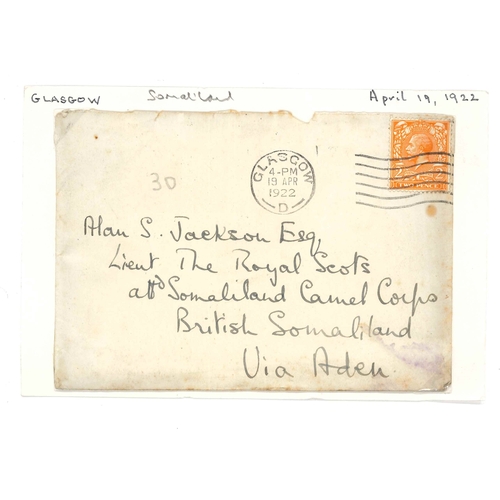 GLASGOW Somaliland April 19, 1922
GLASGOW
4-PM
19 APR
1922
D
TWO PENCE
30
Alan S. Jackson Esq,
Lieut The Royal Scots
attd Somaliland Camel Corps
British Somaliland
Via Aden